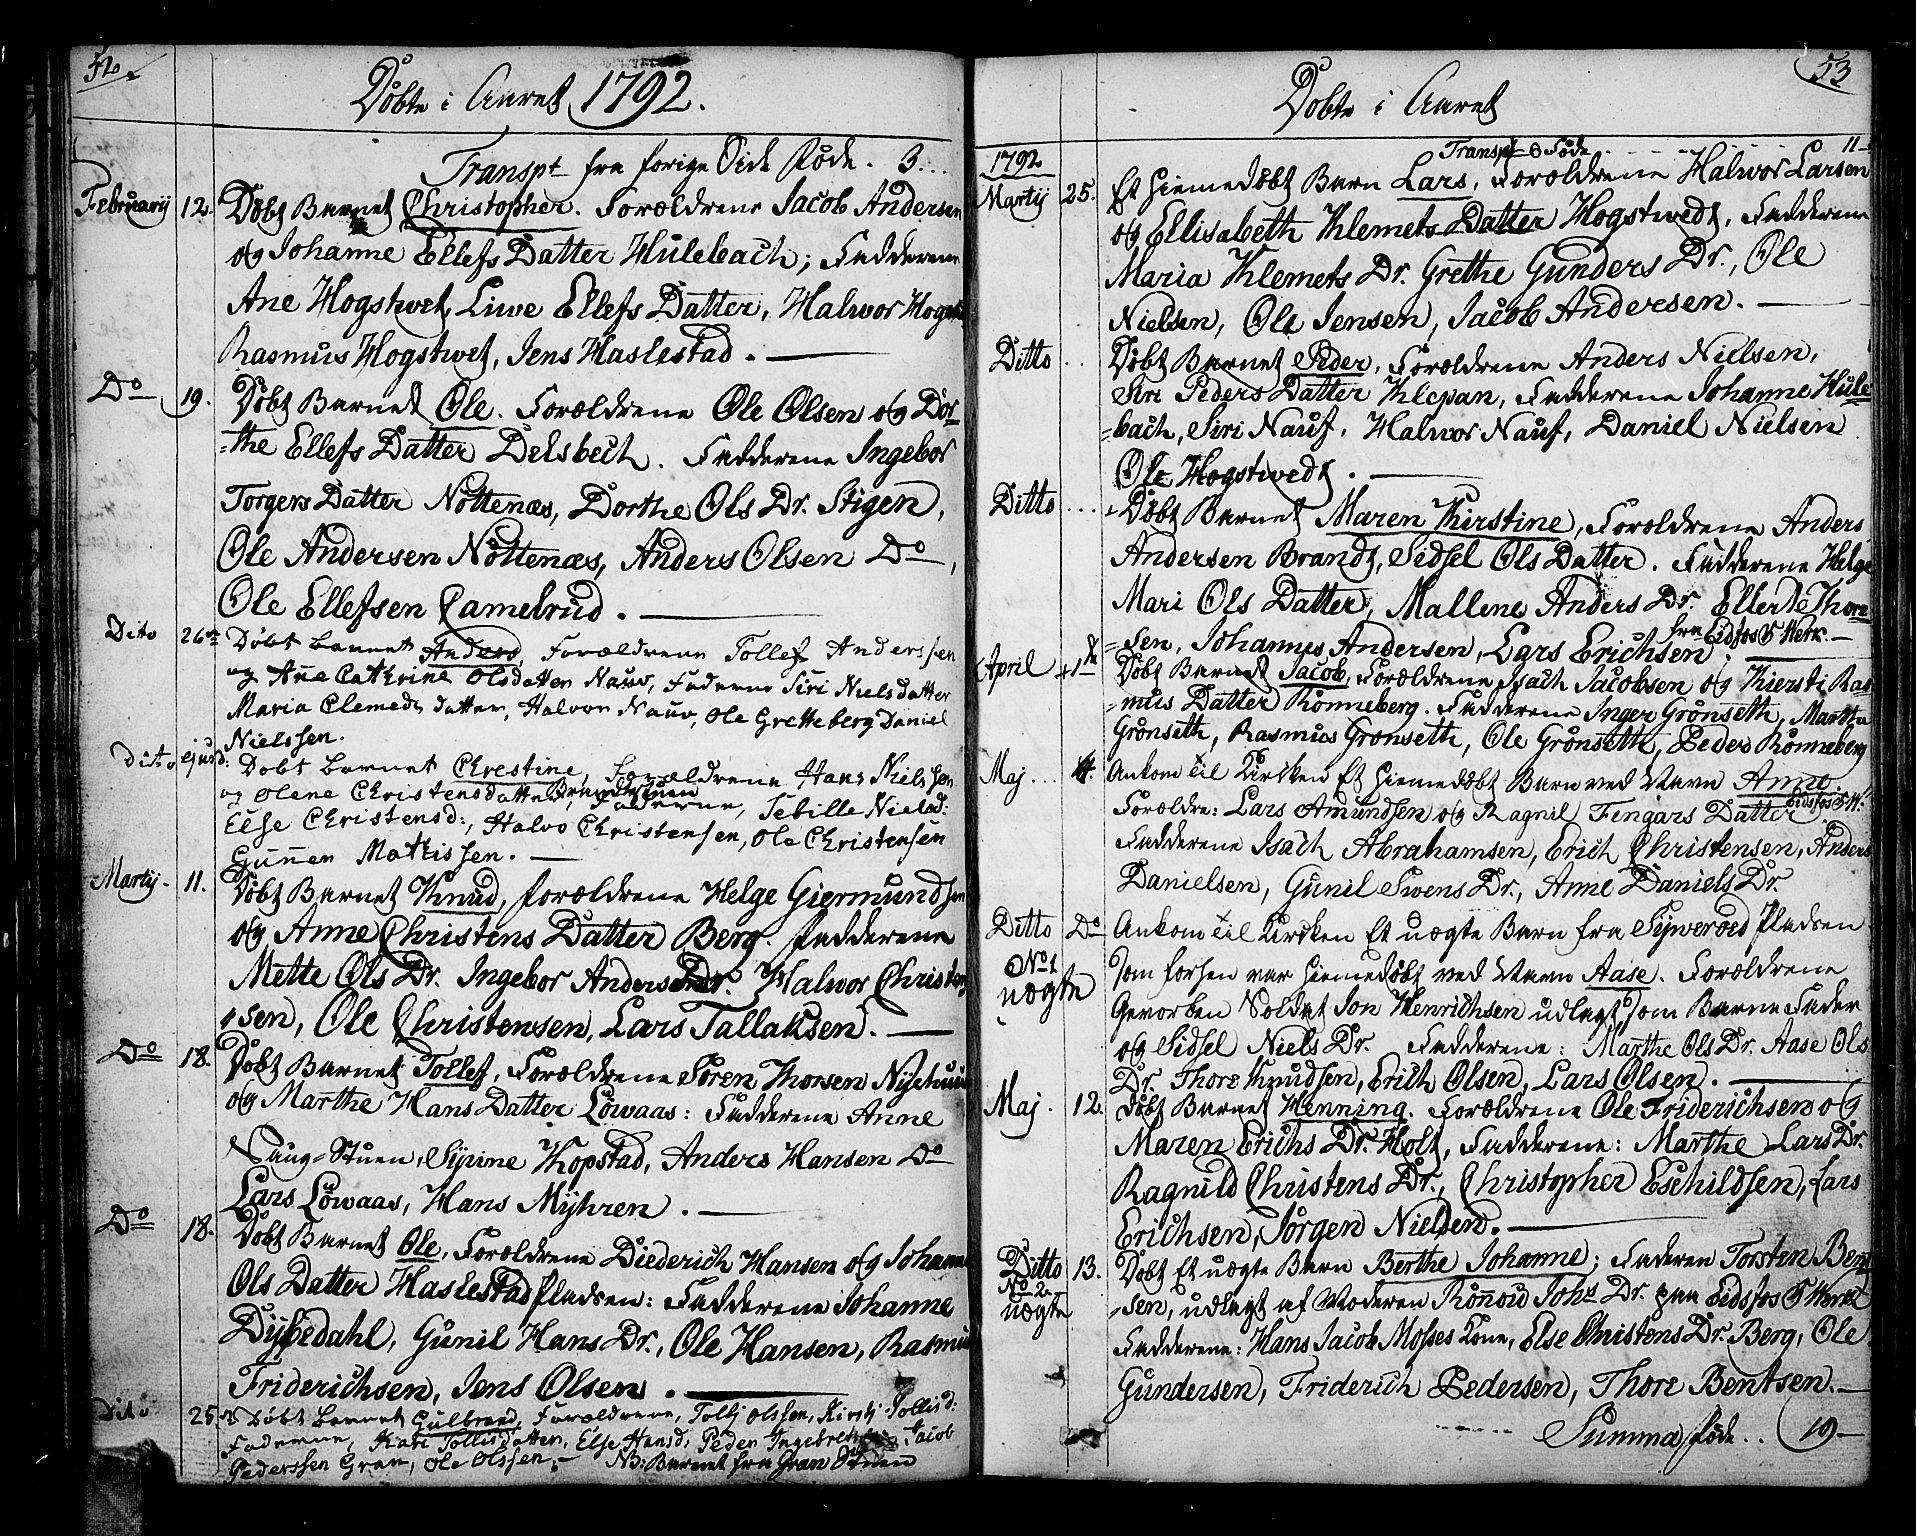 52
Döbte i Aaret 1792.
Transpt fra forige Side Föde. 3...
Februarij 12. Döbt Barnet Christopher. Foroældrene Jacob Andersen
og Johanne Ellefs Datter Hulebach; Fadderene
Ane Hogstvet, Live Ellefs Datter, Halvor Hogst
Rasmus Hogstvet, Jens Haslestad.
Do 19. Döbt Barnet Ole. Foroældrene Ole Olsen og Dor-
-the Ellefs Datter Delsbech. Fadderene Ingebor
Torgers Datter Nöttenæs, Dorthe Ols Dr. Stigen,
Ole Andersen Nöttenæs, Anders Olsen Do,
Ole Ellefsen Camelrud.
Dito 26de Döbt barnet Anders, Foroældrene Tollef Anderssen
og Ane Cathrine Olsdatter Nauv, Faderne Siri Nielsdatter
Maria Clemeds datter, Halvor Nauv, Ole Gretteberg Daniel
Nielssen.
dito ejusd: Döbt barnet Chrestine, Foroældrene Hans Nielssen
og Olene Christensdatter Brændstuen Faderne, Sebille Nielsd:
Else Christensd:, Halvo Christensen, Ole Christensen
Gunner Mathissen.
Martij. 11. Döbt Barnet Knud, foroældrene Helge Giermundsen
og Anne Christens Datter Berg. Fadderene
Mette Ols Dr. Ingebor Anders Dr. Halvor Christen-
sen, Ole Christensen, Lars Tallaksen.
Do 18. Döbt Barnet Tollef, Foroældrene Sören Thorsen Nyehuus
og Marthe Hans Datter Löwaas: Fadderene Anne
Saug-Stuen, Syrine Kopstad, Anders Hansen Do
Lars Löwaas, Hans Myhren.
Do 18. Döbt Barnet Ole, Foroældrene Diederich Hansen og Johanne
Ols Datter Haslestad Pladsen: Fadderene Johanne
Dysedahl, Gunil Hans Dr., Ole Hansen, Rasmus
Friderichsen, Jens Olsen.
Dito 25de Döbt barnet Gulbrand, Foroældrene, Tolli Olssen, Kirsti Tollisd:
Faderne, Kari Tollisdatter, Else Hansd, Peder Ingebretsen, Jacob
Pederssen Gran, Ole Olssen, NB: Barnet fra Gran Stuen
53
Döbte i Aaret
Transpt 8 Föde 11
1792
Martij 25. Et hiemedöbt Barn Lars, Foroældrene Halvor Larsen
og Ellisabeth Klemets Datter Hogstvedt, Fadderene
Maria Klemets Dr. Grethe Gunders Dr., Ole
Nielsen, Ole Jensen, Jacob Andersen.
Ditto Döbt Barnet Peder, Foroældrene Anders Nielsen,
Siri Peders Datter Klepan, Fadderene Johanne Hule-
-bach, Siri Nauf, Halvor Nauf, Daniel Nielsen
Ole Hogstvedt.
Ditto Döbt Barnet Maren Kirstine, Foroældrene Anders
Andersen Brandt, Sidsel Ols Datter. Fadderene Helge
Mari Ols Datter, Mallene Anders Dr. Ellerde Thore-
-sen, Johannes Andersen, Lars Erichsen fra Eidsfos Werk.
April 1de Döbt Barnet Jacob, Foroældrene Isach Jacobsen og Kiersti Ras-
-mus Datter Rönneberg. Fadderene Inger Grönseth, Marthe
Grönseth, Rasmus Grönseth, Ole Grönseth, Peder Rönneberg
Maj... 4. Ankom til Kirken Et hiemedöbt Barn ved Navn Anne
Foroældre: Lars Amundsen og Ragnil Fengars Datter Eidsfos W:
Fadderene Isach Abrahamsen, Erich Christensen, Anders
Danielsen, Gunil Swens Dr., Anne Daniels Dr.
Ditto Do Ankom til Kirken Et uægte Barn fra Syweröes Pladsen
No 1 uægte som forhen var hiemedöbt ved Navn Aase. Foroældrene
Gevorben Soldat Jon Henrichsen udlagt som Barne Fader
og Sidsel Niels Dr. Fadderene: Marthe Ols Dr. Aase Ols
Dr. Thore Knudsen, Erich Olsen, Lars Olsen.
Maj. 12. Döbt Barnet Henning. Foroældrene Ole Friderichsen og
Maren Erichs Dr. Holt, Fadderene: Marthe Lars Dr.
Ragnild Christens Dr., Christopher Eschildsen, Lars
Erichsen, Jörgen Nielsen.
Ditto 13. Döbt Et uægte Barn Berthe Johanne; Faderen Torsten Bent-
No 2. uægte -sen, udlagt af Moderen Rönnou Johs Dr. paa Eidsfos Werket
Fadderene: Hans Jacob Mosses Kone, Else Christens Dr. Berg, Ole
Gundersen, Friderich Pedersen, Thore Bentsen.
Summa föde.. 19